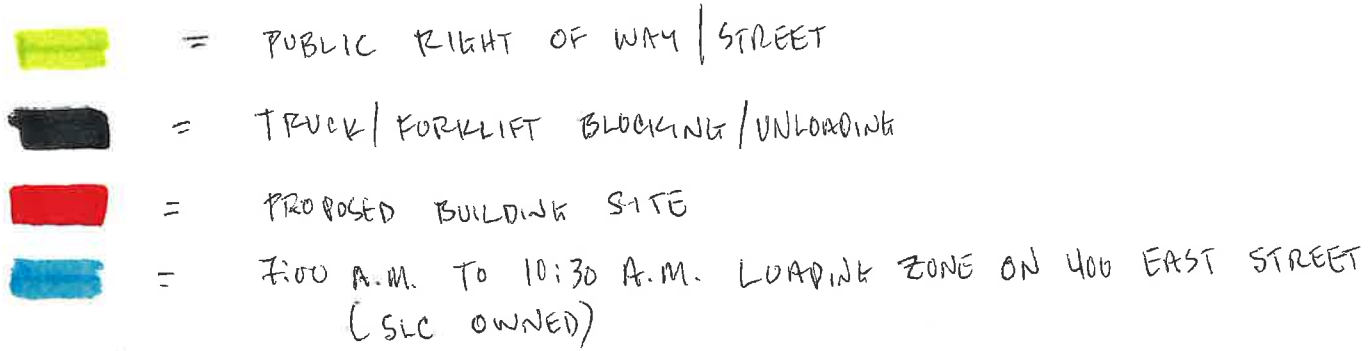 = PUBLIC RIGHT OF WAY / STREET
= TRUCK / FORKLIFT BLOCKING / UNLOADING
= PROPOSED BUILDING SITE
= 7:00 A.M. TO 10:30 A.M. LOADING ZONE ON 400 EAST STREET
(SLC OWNED)